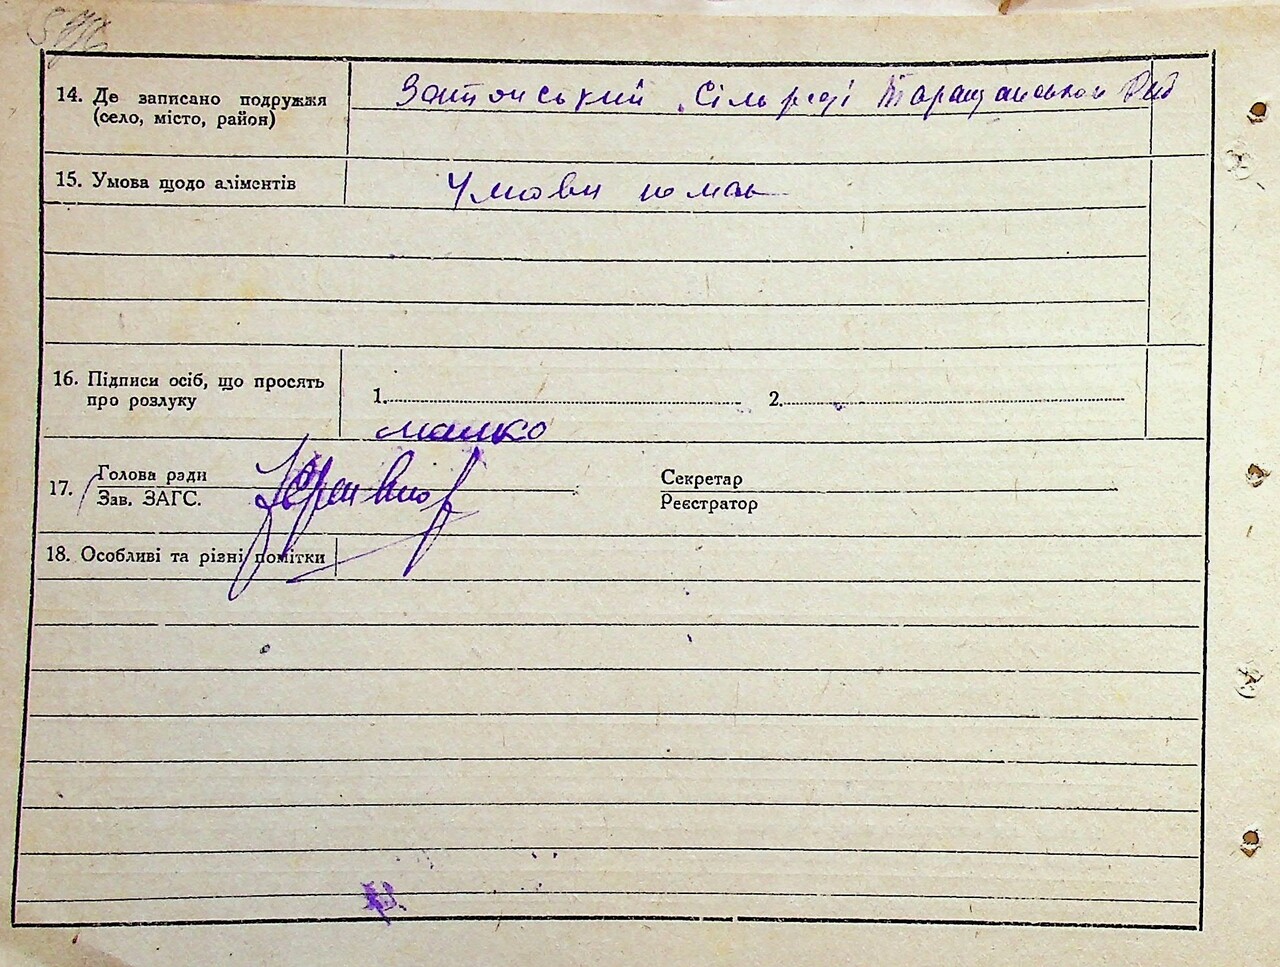 14. Де записано подружжя
(село, місто, район)
Затонський Сільраді Таращанської Рад
15. Умова щодо аліментів
Умови нома
16. Підписи осіб, що просять
про розлуку
1.
2.
малко
17.
Голова ради
Зав. ЗАГС.
Секретар
Реєстратор
18. Особливі та різні помітки